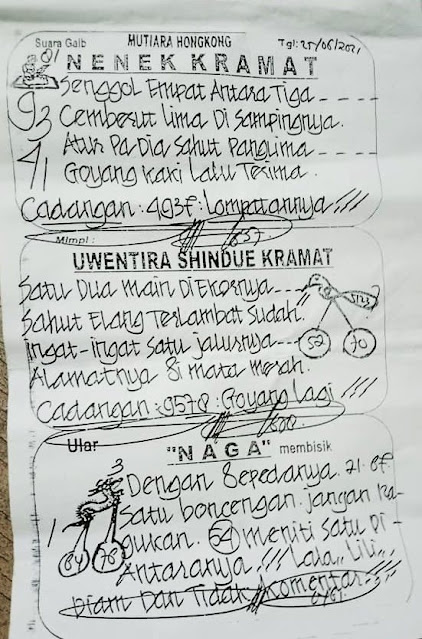 Suara Gaib MUTIARA HONGKONG Tgl: 25/06/2021
NENEK KRAMAT
Senggol Empat Antara Tiga
93 Cembesut Lima Di Sampingnya.
Atur Pa Dia Sahut Panglima
41 Goyang Kaki Lalu Terima
Cadangan: 4937: Lompatannya
Mimpi: 857
UWENTIRA SHINDUE KRAMAT
Satu Dua Main Di Ekornya
Sahut Elang Terlambat Sudah"
Ingat-ingat Satu Jalurnya
52 70
Alamatnya 8i mata merah.
Cadangan: 9578: Goyang Lagi
800
Ular "NAGA" membisik
3
Dengan Sepedanya. 71. 07
Satu boncengan. Jangan Ra-
1 gukan. 64 meniti Satu Di-
Antaranya !!! Lala,, Lili,,
Diam Dan Tidak Komentar